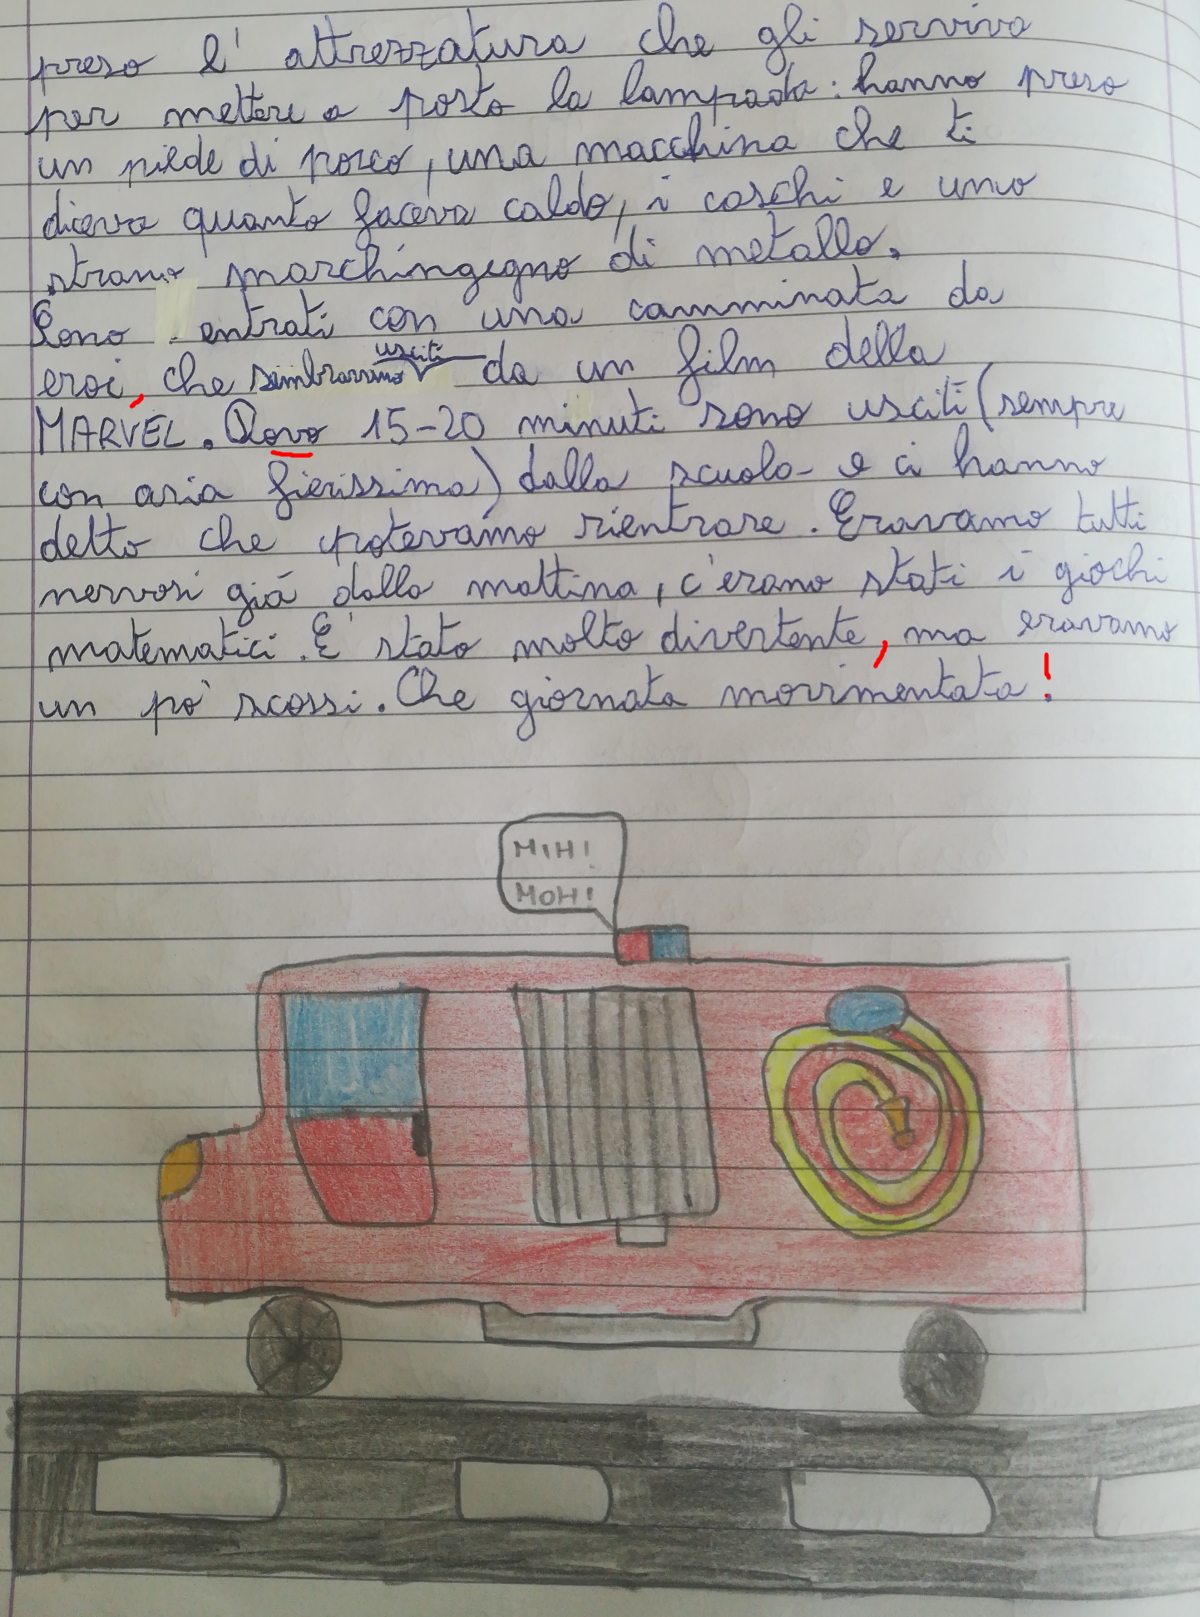 preso l'attrezzatura che gli serviva
per mettere a posto la lampada: hanno preso
un piede di porco, una macchina che ti
diceva quanto faceva caldo, i caschi e uno
strano marchingegno di metallo.
Sono entrati con una camminata da
eroi, che sembravano usciti da un film della
MARVEL. Dopo 15-20 minuti sono usciti (sempre
con aria fierissima) dalla scuola e ci hanno
detto che potevamo rientrare. Eravamo tutti
nervosi già dalla mattina, c'erano stati i giochi
matematici. E' stato molto divertente, ma eravamo
un po' scossi. Che giornata movimentata!
MIH!
MOH!